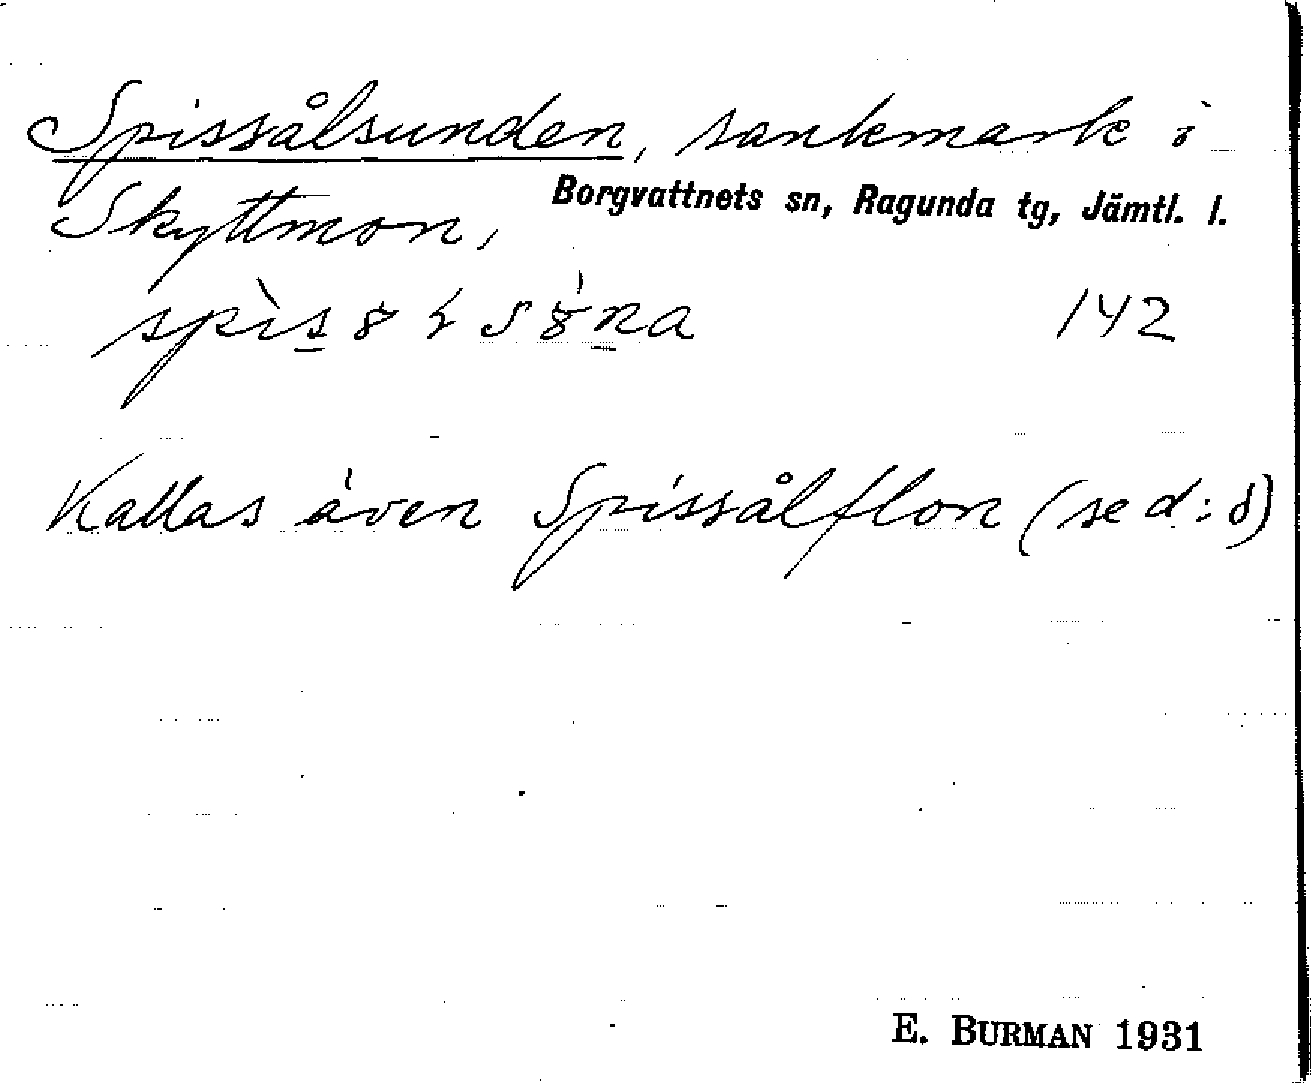 Spissålsunden, sankmark i
Borgvattnets sn, Ragunda tg, Jämtl. l.
Skyttmon,
142
Kallas även Spissålflon (se d:o)
E. BURMAN 1931